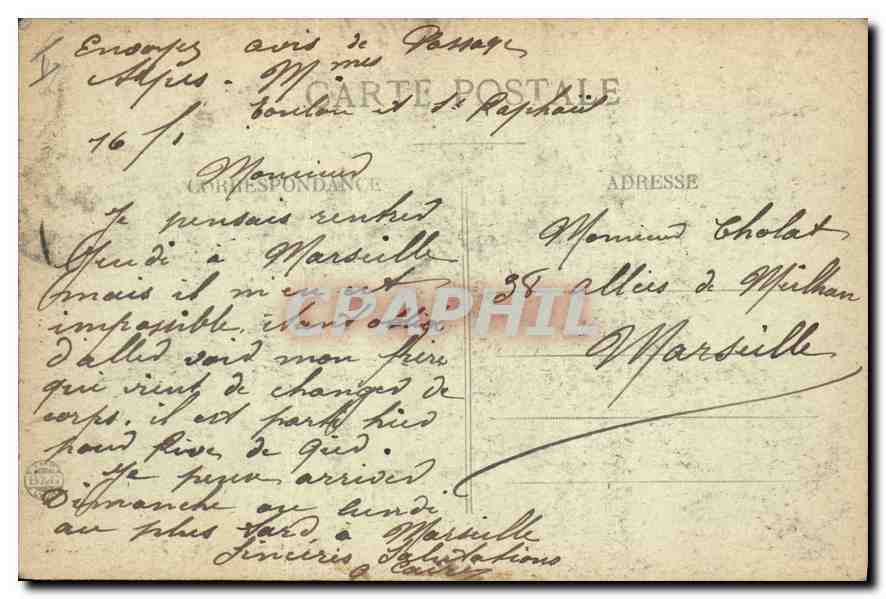 Envoyez avis de Passage
Alpes - Mmes
CARTE POSTALE
Toulon et St Raphaël
16/1
Monsieur
CORRESPONDANCE
Je pensais rentrer
Jeudi à Marseille
mais il m'en est
impossible, étant obligé
d'aller voir mon frère
qui vient de changer de
corps, il est parti hier
pour Rive de Gier.
Je peux arriver
Dimanche ou lundi
au plus tard à Marseille
Sincères Salutations
ADRESSE
Monsieur Cholat
38 allées de Meilhan
Marseille
CPAPHIL